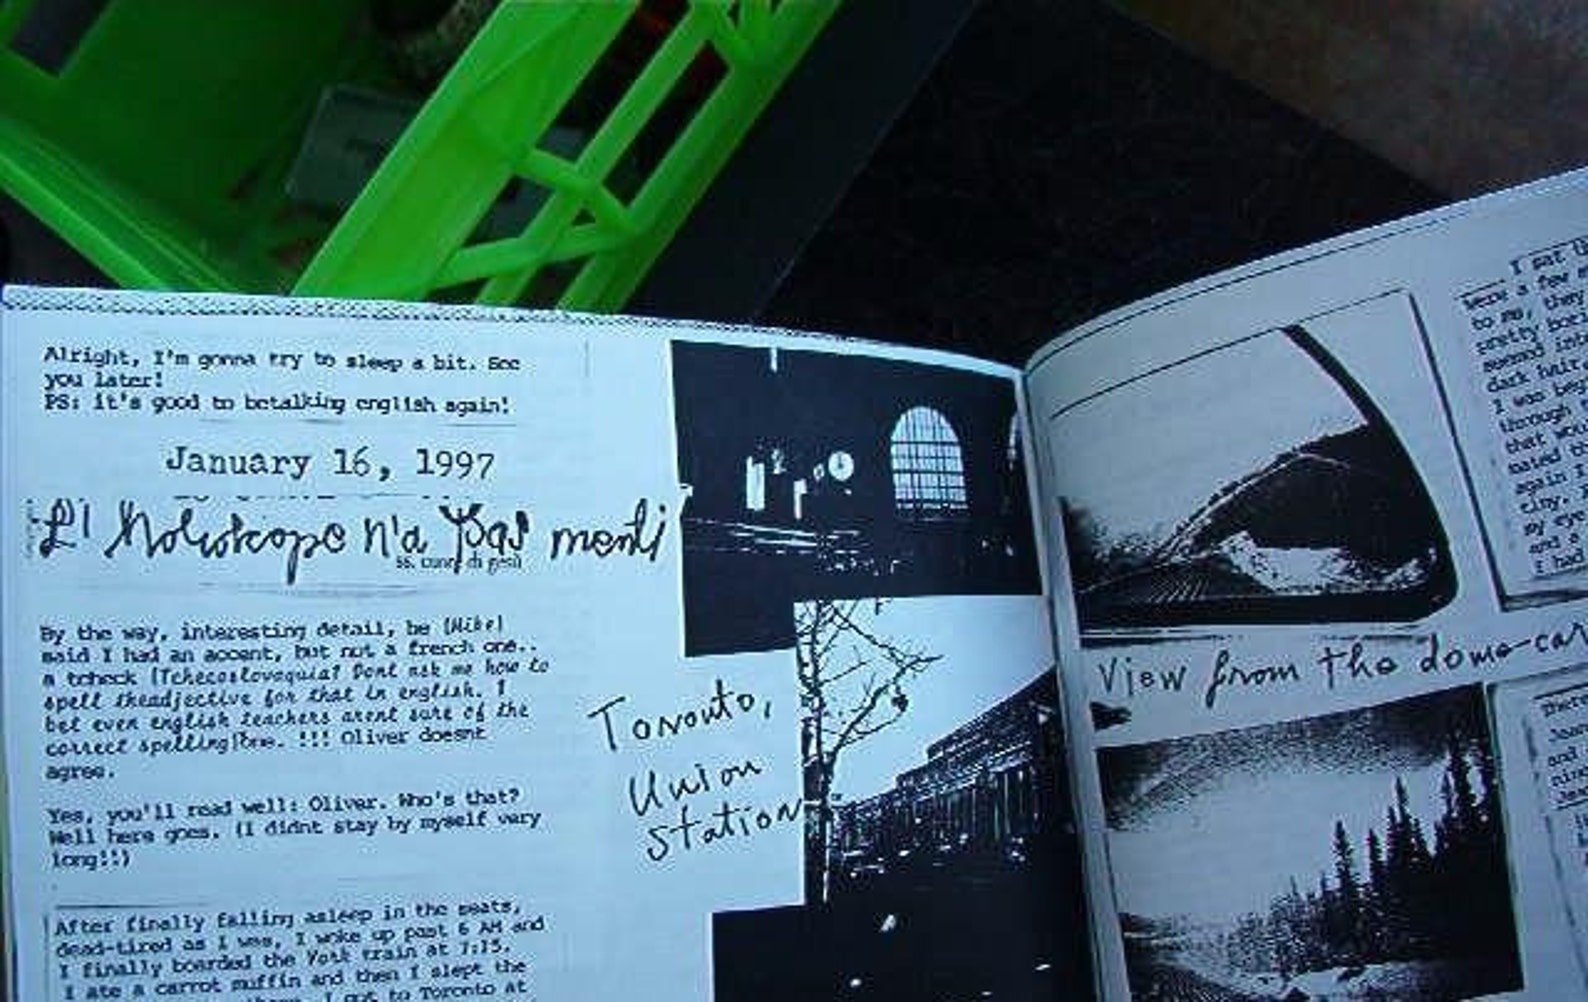 Alright, I'm gonna try to sleep a bit. See
you later!
PS: it's good to betalking english again!
January 16, 1997
L'Horoscope n'a pas menti
By the way, interesting detail, he (Mike)
said I had an accent, but not a french one..
a tcheck (Tchecoslovaquia? Dont ask me how to
spell theadjective for that in english. I
bet even english teachers arent sure of the
correct spelling)one. !!! Oliver doesnt
agree.
Yes, you'll read well: Oliver. Who's that?
Well here goes. (I didnt stay by myself very
long!!)
After finally falling asleep in the seats,
dead-tired as I was, I woke up past 6 AM and
I finally boarded the York train at 7:15.
I ate a carrot muffin and then I slept the
I got to Toronto at
Toronto,
Union
Station
I sat
were a few
to me, they
pretty
second
dark hair.
I was
through
that
again
tiny.
my eye
and a
I had
View from the dome-car
and